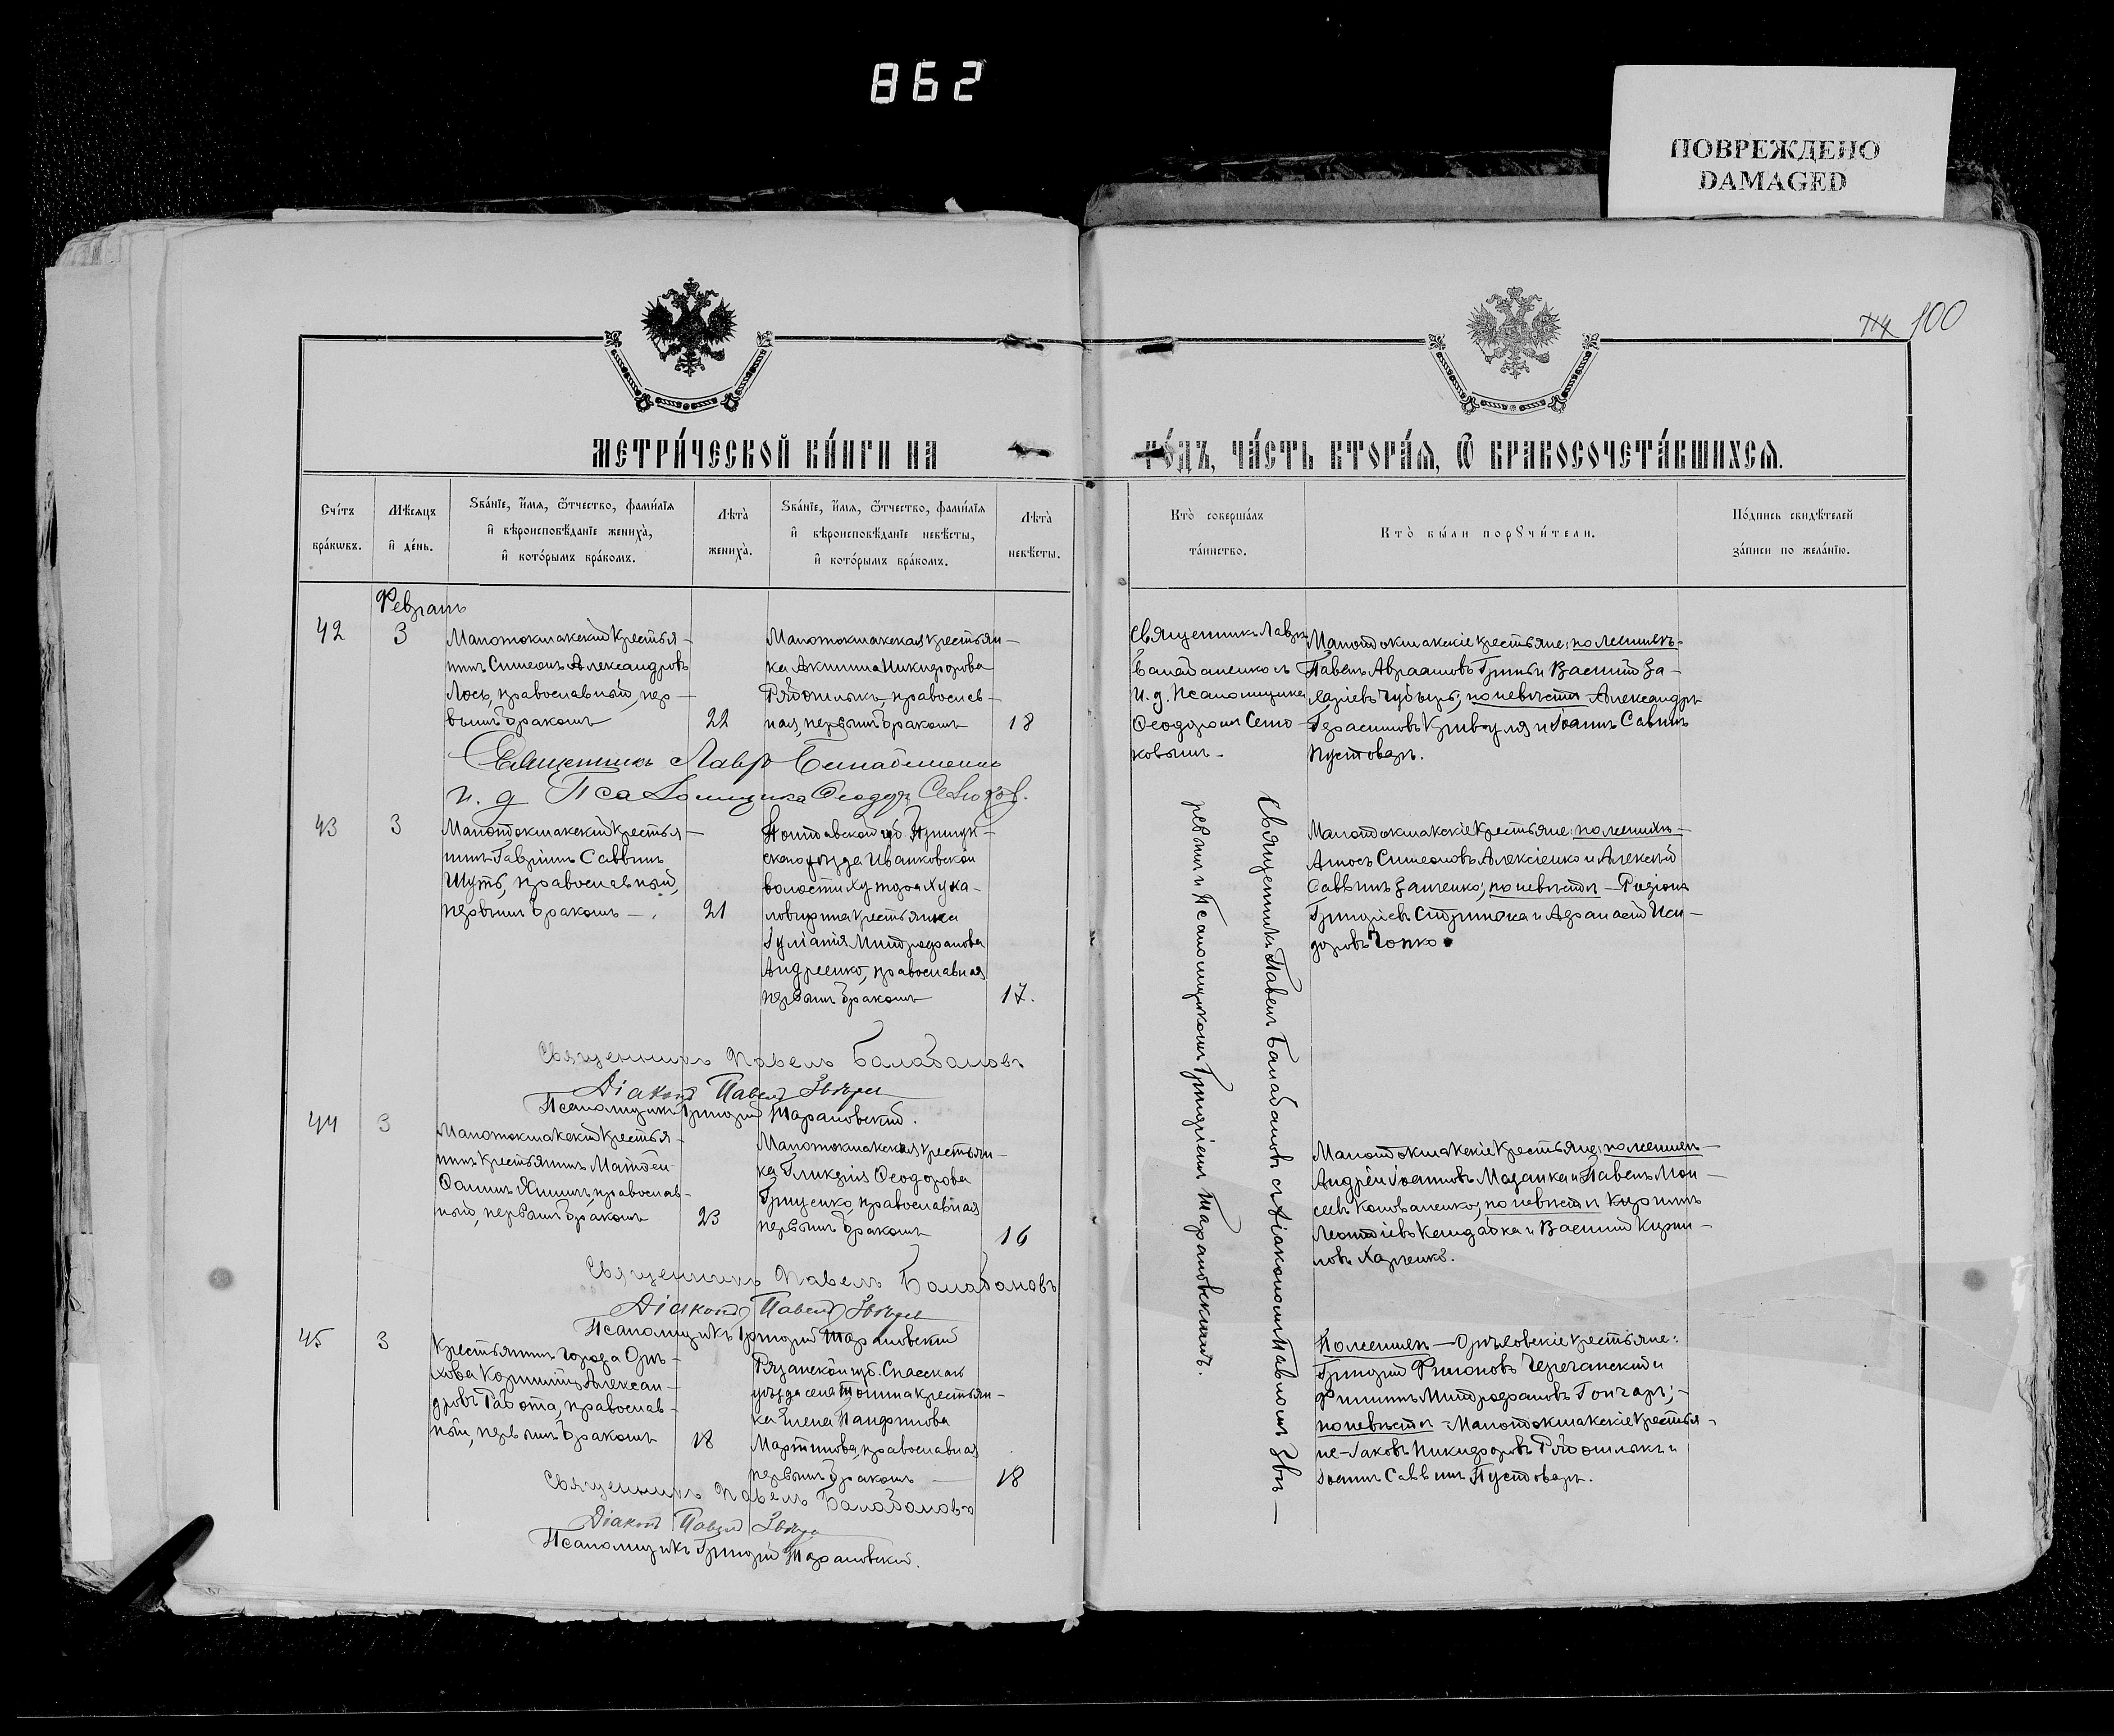 862
ПОВРЕЖДЕНО
DAMAGED
114 100
МЕТРИ́ЧЕСКОЙ КНИ́ГИ НА
ГО́ДЪ, ЧА́СТЬ ВТОРА́Я, Ѿ БРАКОСОЧЕТА́ВШИХСЯ.
Сче́тъ бра́кѡвъ.
Мѣ́сяцъ и де́нь.
Ѕва́нїе, и́мя, ѻ́тчество, фами́лїя и вѣроисповѣ́данїе жениха̀, и кото́рымъ бра́комъ.
Лѣта̀ жениха̀.
Ѕва́нїе, и́мя, ѻ́тчество, фами́лїя и вѣроисповѣ́данїе невѣ́сты, и кото́рымъ бра́комъ.
Лѣта̀ невѣ́сты.
Кто̀ соверша́лъ та́инство.
Кто̀ бы́ли порꙋчи́тели.
По́дпись свидѣ́телей за́писи по жела́нїю.
Февраль
42
3
Малотокмакскій крестья-
нинъ Симеонъ Александровъ
Лось, православный, пер-
вымъ бракомъ
22
Малотокмакская крестьян-
ка Акилина Никифорова
Рябошлыкъ, православ-
ная, первымъ бракомъ
18
Священникъ Лавръ
Балабаненко съ
И. д. Псаломщика
Ѳеодоромъ Сено-
ковымъ-
Малотокмакскіе крестьяне: по женихѣ-
Павелъ Авраамовъ Гринь и Василій За-
харіевъ Чубырь; по невѣстѣ Александръ
Герасимовъ Кривуля и Іоаннъ Савинъ
Пустоваръ.
Священникъ Лавръ Балабаненко
и. д. Псаломщика Ѳеодоръ
43
3
Малотокмакскій крестья-
нинъ Гавріилъ Саввинъ
Шуть, православный,
первымъ бракомъ -.
21
Полтавской губ. Прилук-
скаго уѣзда Иванковской
волости хутора
крестьянка
Іуліанія Митрофанова
Андреенко, православная
первымъ бракомъ
17.
Малотокмакскіе крестьяне: по женихѣ-
Амосъ Симеоновъ Алексіенко и Алексѣй
Саввинъ Заченко; по невѣстѣ - Родіонъ
Григоріевъ и Аѳанасій Иси-
доровъ Чопко.
Священникъ Павелъ Балабановъ
Діаконъ Павелъ Звѣревъ
Псаломщикъ Григорій Тарановскій.
Священникъ Павелъ Балабановъ съ Діакономъ Павломъ Звѣ-
ревымъ и Псаломщикомъ Григоріемъ Тарановскимъ.
44
3
Малотокмакскій крестья-
нинъ крестьянинъ Матѳей
Ѳоминъ православ-
ный, первымъ бракомъ
23
Малотокмакская крестьян-
ка Гликерія Ѳеодорова
Гриценко, православная
первымъ бракомъ
16
Малотокмакскіе крестьяне: по женихѣ-
Андрей Іоанновъ Мазанка и Павелъ Мои-
сеевъ Коноваленко; по невѣстѣ Кириллъ
Леонтіевъ и Василій Кирил-
ловъ Харченко.
Священникъ Павелъ Балабановъ
Діаконъ Павелъ Звѣревъ
Псаломщикъ Григорій Тарановскій
45
3
Крестьянинъ города Орѣ-
хова Корнилій Алексан-
дровъ Работа, православ-
ный, первымъ бракомъ
18
Рязанской губ. Спасскаго
уѣзда села крестьян-
ка Елена Панфилова
Мартынова, православная
первымъ бракомъ -
18
По женихѣ - Орѣховскіе крестьяне:
Григорій Филоновъ и
Филиппъ Митрофановъ Гончаръ;-
по невѣстѣ - Малотокмакскіе крестья-
не - Іаковъ Никифоровъ Рябошлыкъ и
Іоаннъ Саввинъ Пустоваръ.
Священникъ Павелъ Балабановъ
Діаконъ Павелъ Звѣревъ
Псаломщикъ Григорій Тарановскій.